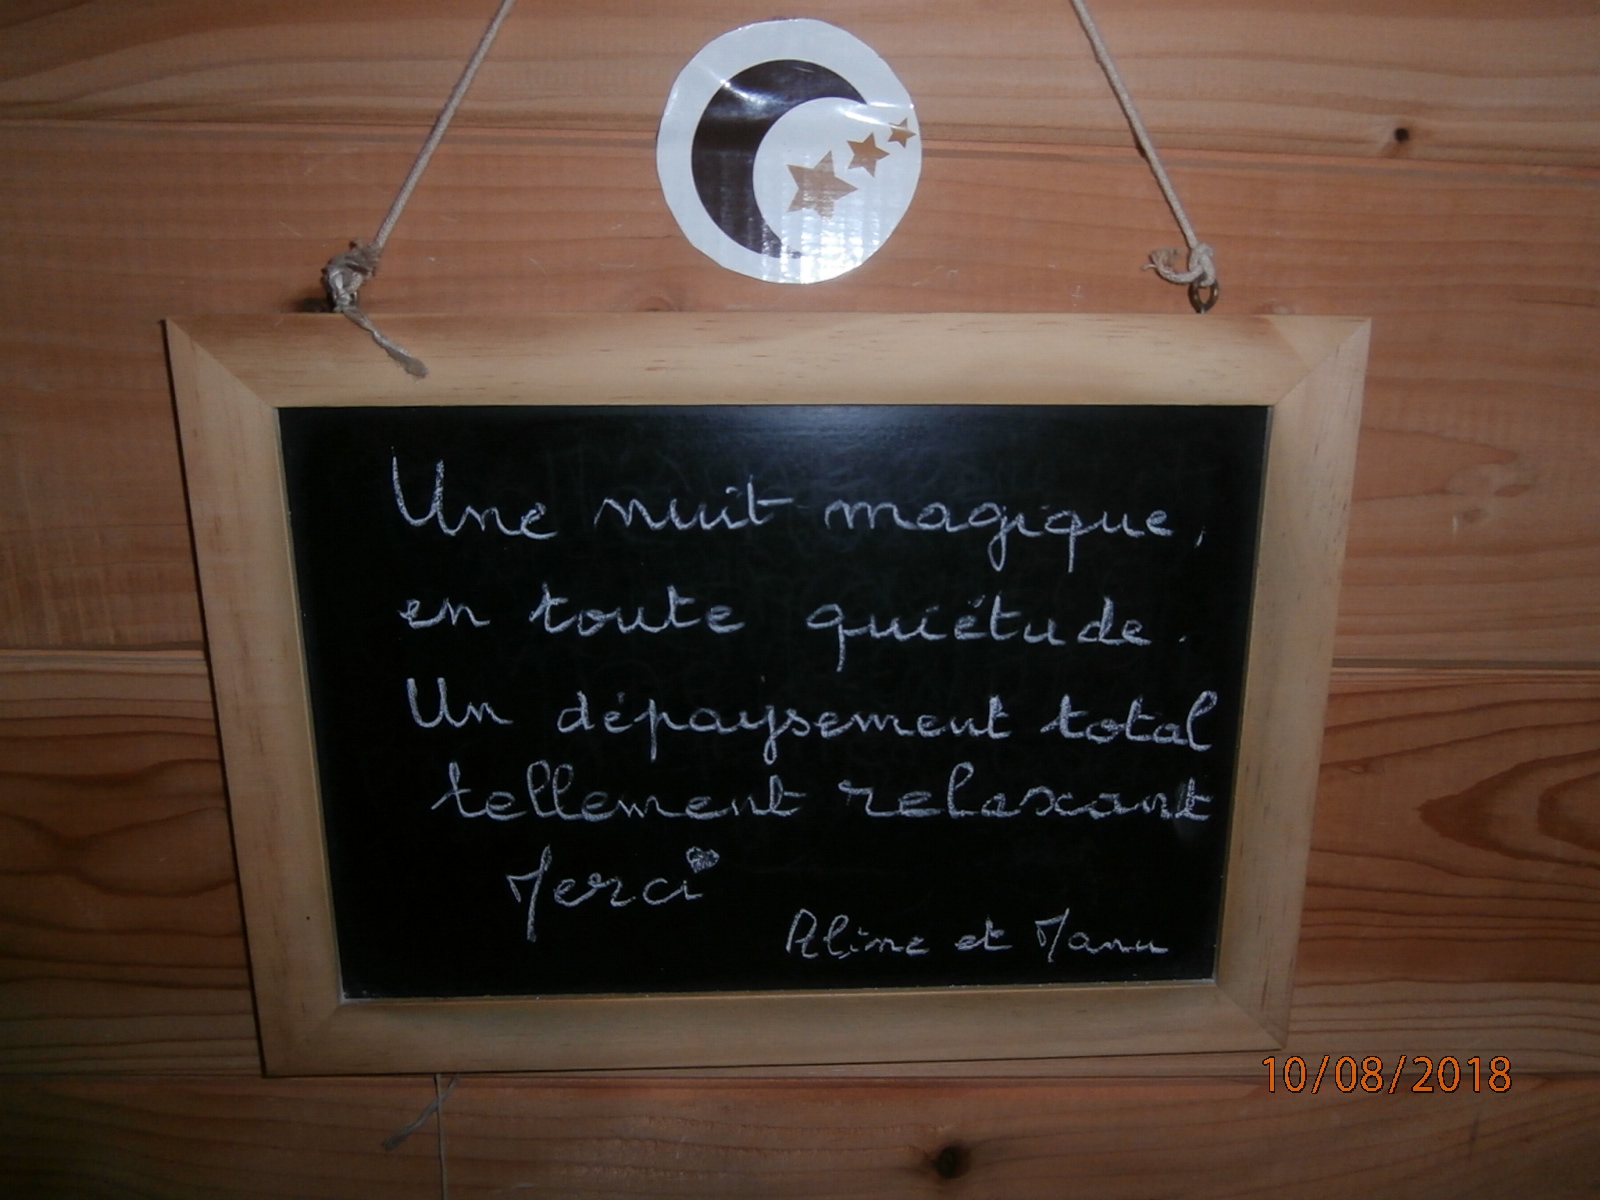 Une nuit magique,
en toute quiétude.
Un dépaysement total
tellement relaxant
Merci
Aline et Manu
10/08/2018